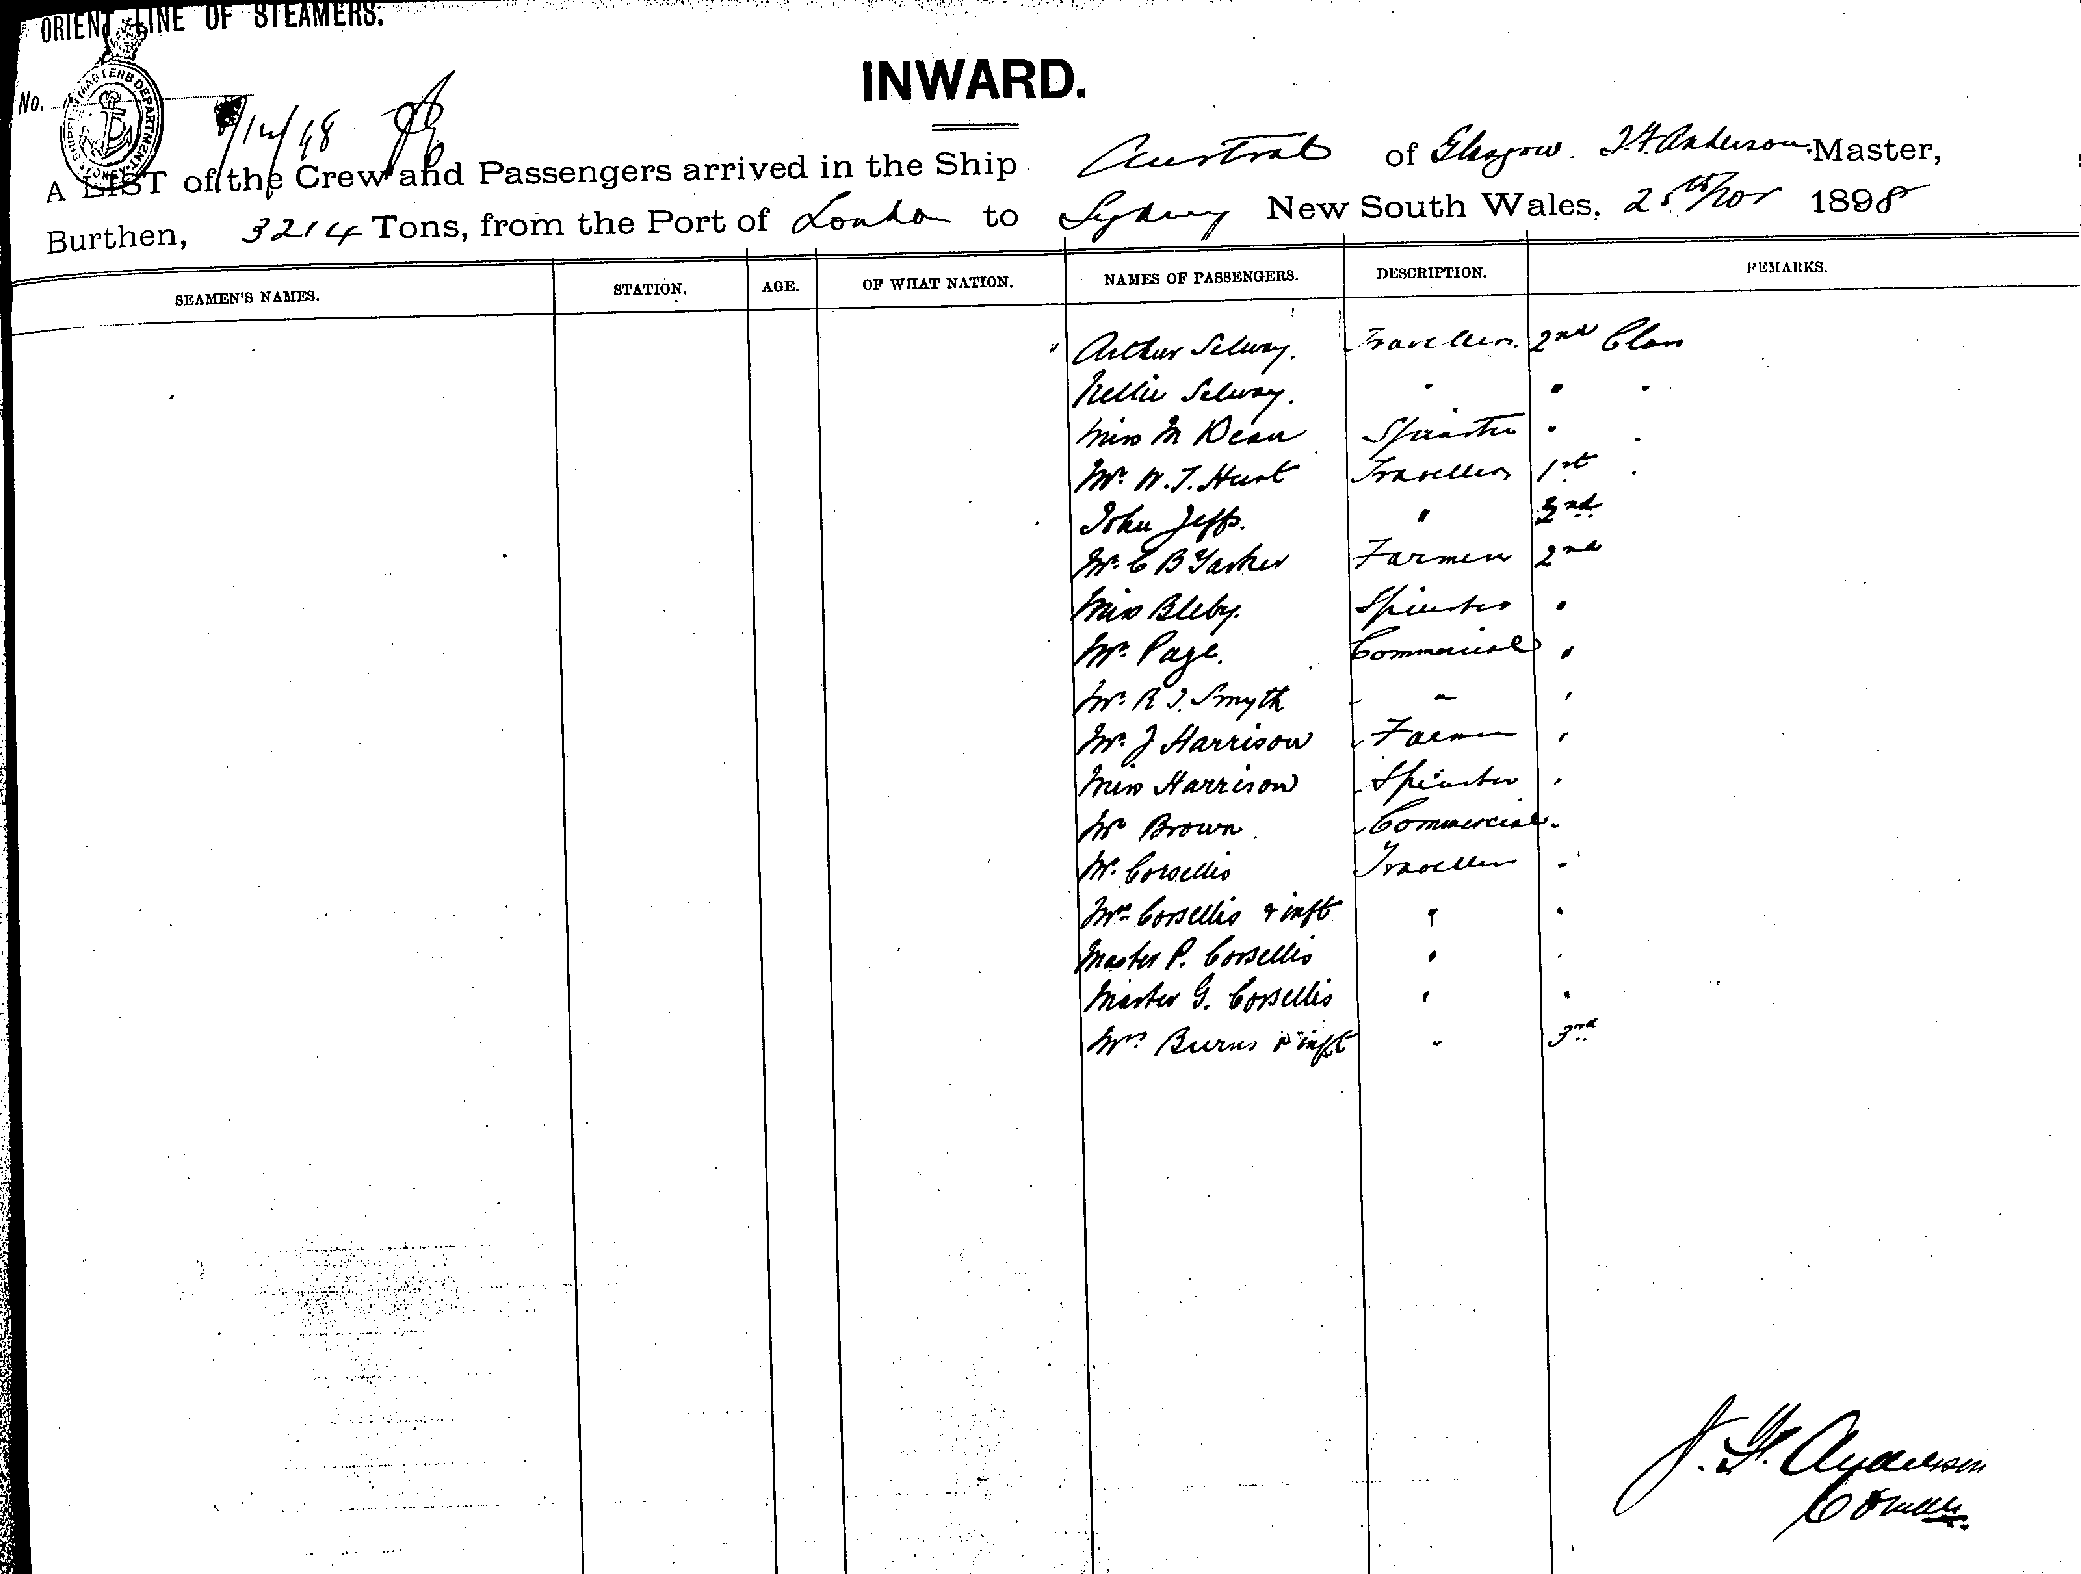 ORIENT LINE OF STEAMERS.
INWARD.
No.
SHIPPING MASTERS DEPARTMENT SYDNEY
/12/98
A LIST of the Crew and Passengers arrived in the Ship Austral of Glasgow. Anderson Master,
Burthen, 3214 Tons, from the Port of London to Sydney New South Wales, 25th Nov 1898
SEAMEN'S NAMES. STATION. AGE. OF WHAT NATION. NAMES OF PASSENGERS. DESCRIPTION. REMARKS.
Arthur Selway. Traveller. 2nd Class
Nellie Selway. " " "
Miss M Dean Spinster " "
Mr. W. T. Hunt Traveller 1st "
John Jeffs. " 2nd
Mr. C B Yarker Farmer 2nd
Miss Bleby. Spinster "
Mr. Page. Commercial "
Mr. R T. Smyth " "
Mr. J Harrison Farmer "
Miss Harrison Spinster "
Mr Brown Commercial "
Mr. Corsellis Traveller "
Mrs Corsellis & inft " "
Master P. Corsellis " "
Master G. Corsellis " "
Mrs Burns & inft " 3rd
Anderson